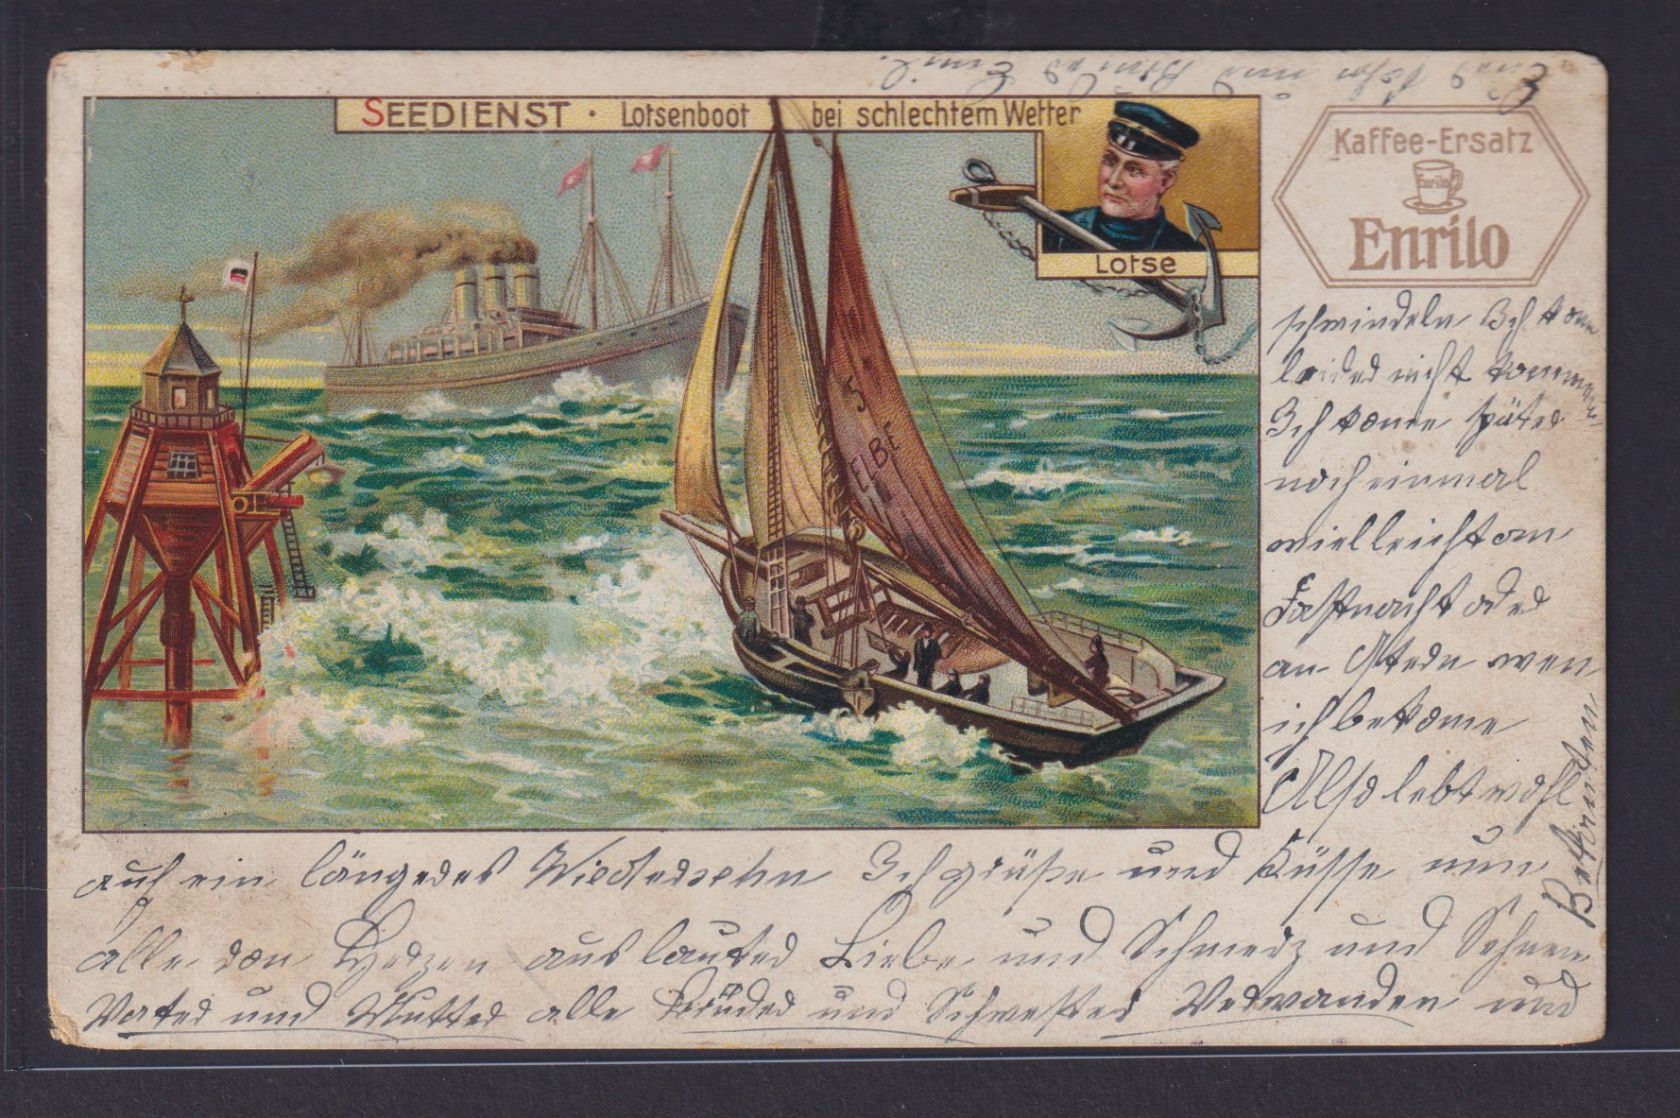 SEEDIENST · Lotsenboot bei schlechtem Wetter
Lotse
5
ELBE
Kaffee-Ersatz
Enrilo
Enrilo
schwindeln Ich kann
leider nicht kommen
Ich kome später
noch einmal
vielleicht an
Fastnacht oder
an Ostern wen
ich bekome
Also lebt wohl
auf ein längeres Wiedersehn Ich grüße und Küsse nun
alle von Herzen aus lauter Liebe und Schmerz und Sehnen
Vater und Mutter alle Brüder und Schwester Verwanden und
Bekannten
Euer Sohn und Emil